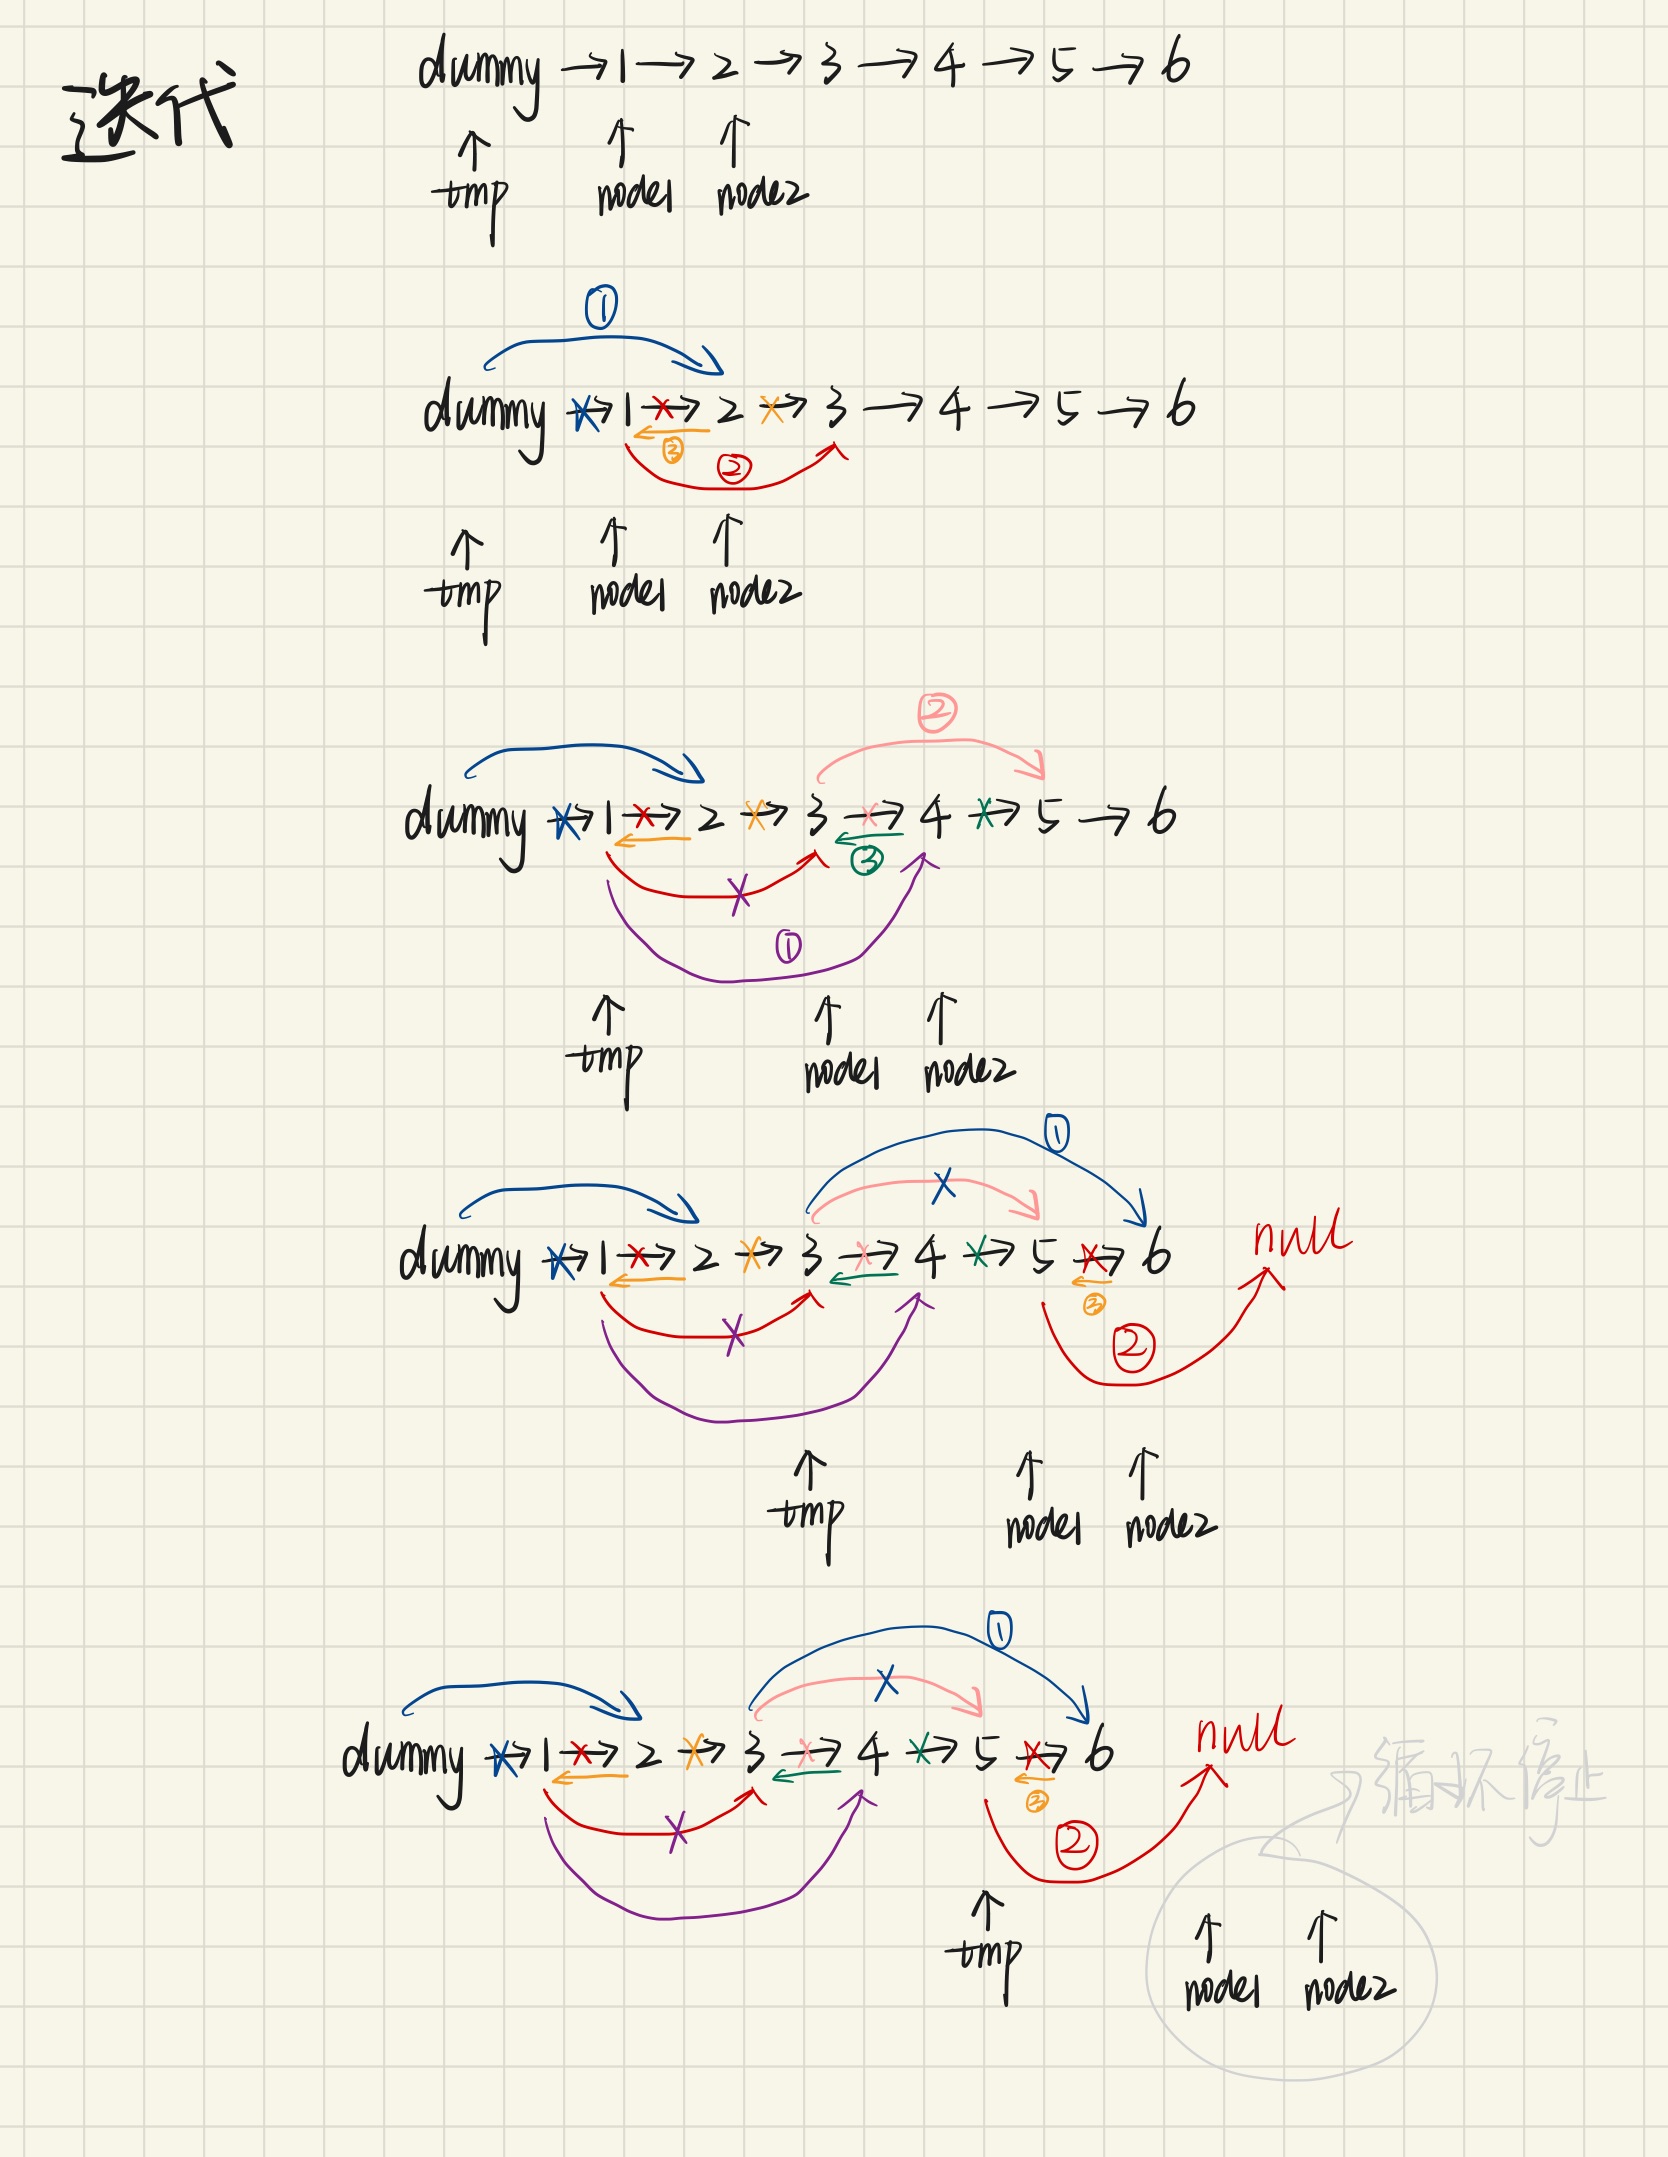 迭代
dummy → 1 → 2 → 3 → 4 → 5 → 6
tmp node1 node2
①
dummy → 1 → 2 → 3 → 4 → 5 → 6
③
②
tmp node1 node2
②
dummy → 1 → 2 → 3 → 4 → 5 → 6
③
①
tmp node1 node2
①
dummy → 1 → 2 → 3 → 4 → 5 → 6 null
③
②
tmp node1 node2
①
dummy → 1 → 2 → 3 → 4 → 5 → 6 null
循环停止
③
②
tmp node1 node2